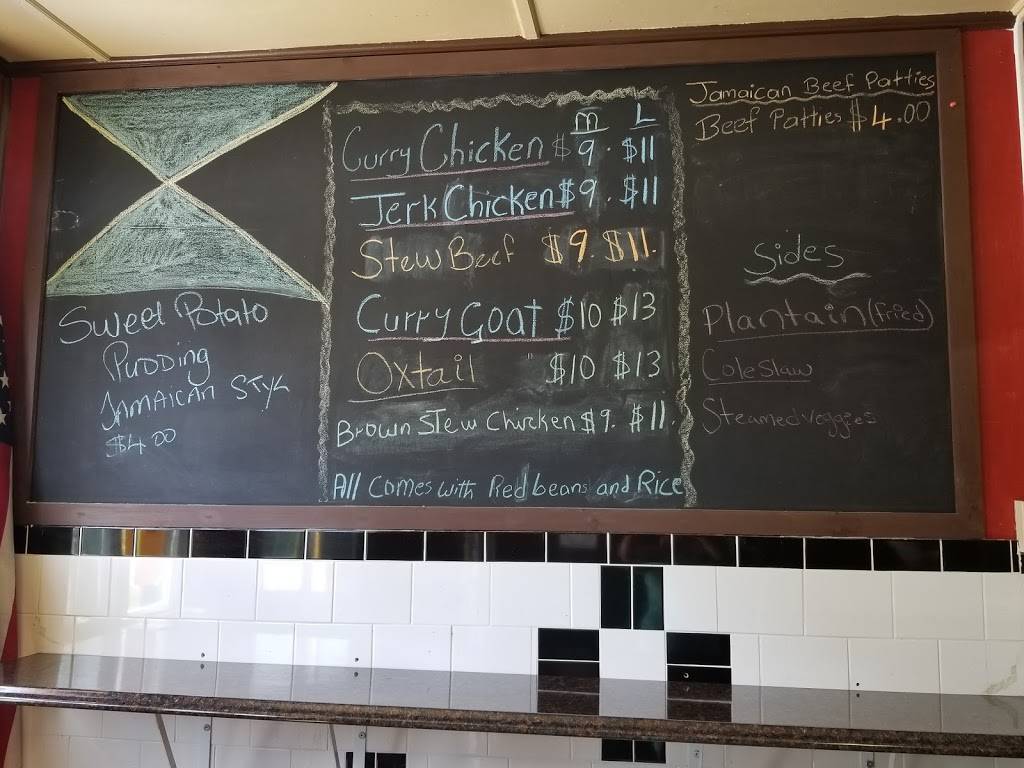 Sweet Potato
Pudding
JAMAICAN STYL
$4.00
M L
Curry Chicken $9. $11
Jerk Chicken $9. $11
Stew Beef $9. $11.
Curry Goat $10 $13
Oxtail " $10 $13
Brown Stew Chicken $9. $11.
All Comes with Red beans and Rice
Jamaican Beef Patties
Beef Patties $4.00
Sides
Plantain (fried)
Cole Slaw
Steamed veggies